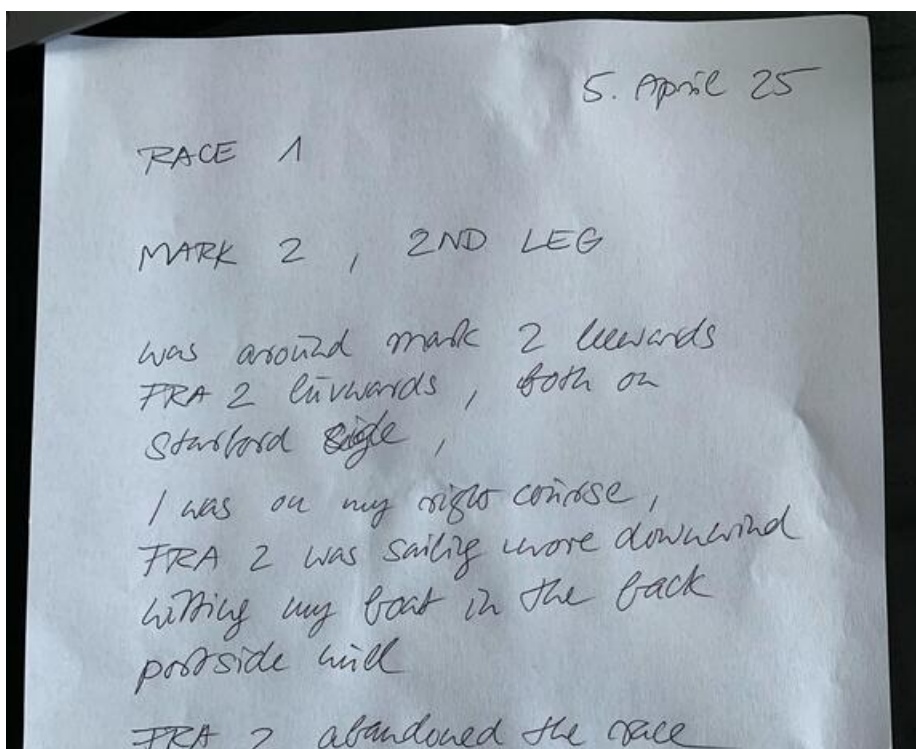 5. April 25
RACE 1
MARK 2, 2ND LEG
was around mark 2 leewards
FRA 2 luvwards, both on
starbord
I was on my right course,
FRA 2 was sailing more downwind
hitting my boat in the back
portside
FRA 2 abandoned the race